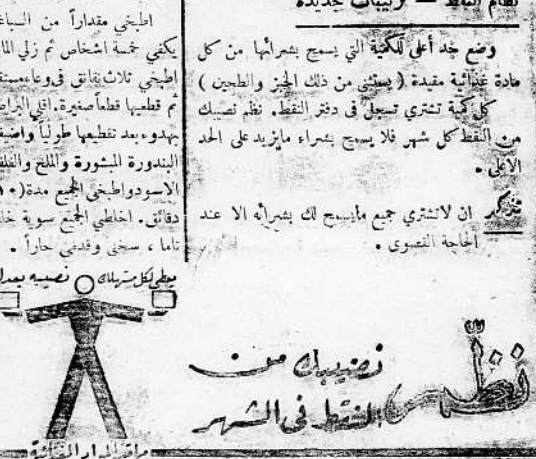 نظام النقط — ترتيبات جديدة
وضع حد أعلى للكمية التي يسمح بشرائها من كل
مادة غذائية مقيدة ( يستثنى من ذلك الخبز والطحين )
كل كمية تشترى تسجل في دفتر النقط. نظم نصيبك
من النقط كل شهر فلا يسمح بشراء مايزيد على الحد
الأعلى .
تذكر ان لاتشتري جميع مايسمح لك بشرائه الا عند
الحاجة القصوى .
نظّم نصيبك من
النقط في الشهر
اطبخي مقداراً من
يكفي خمسة اشخاص ثم زلي
اطبخي ثلاث نقانق في وعاء
ثم قطعيها قطعاً صغيرة. اقلي
بهدوء بعد تقطيعها طولياً
البندورة المبشورة والملح
الاسود واطبخي الجميع مدة
دقائق. اخلطي الجميع سوية
تاما ، سخني وقدمي حاراً .
يعطى لكل مستهلك نصيبه
مراقبة المواد الغذائية